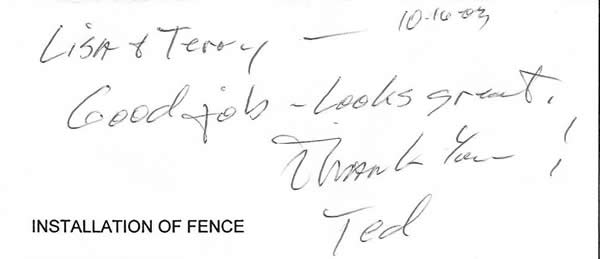 Lisa & Terry — 10-16-03
Good job - Looks great.
Thank You !
INSTALLATION OF FENCE
Ted